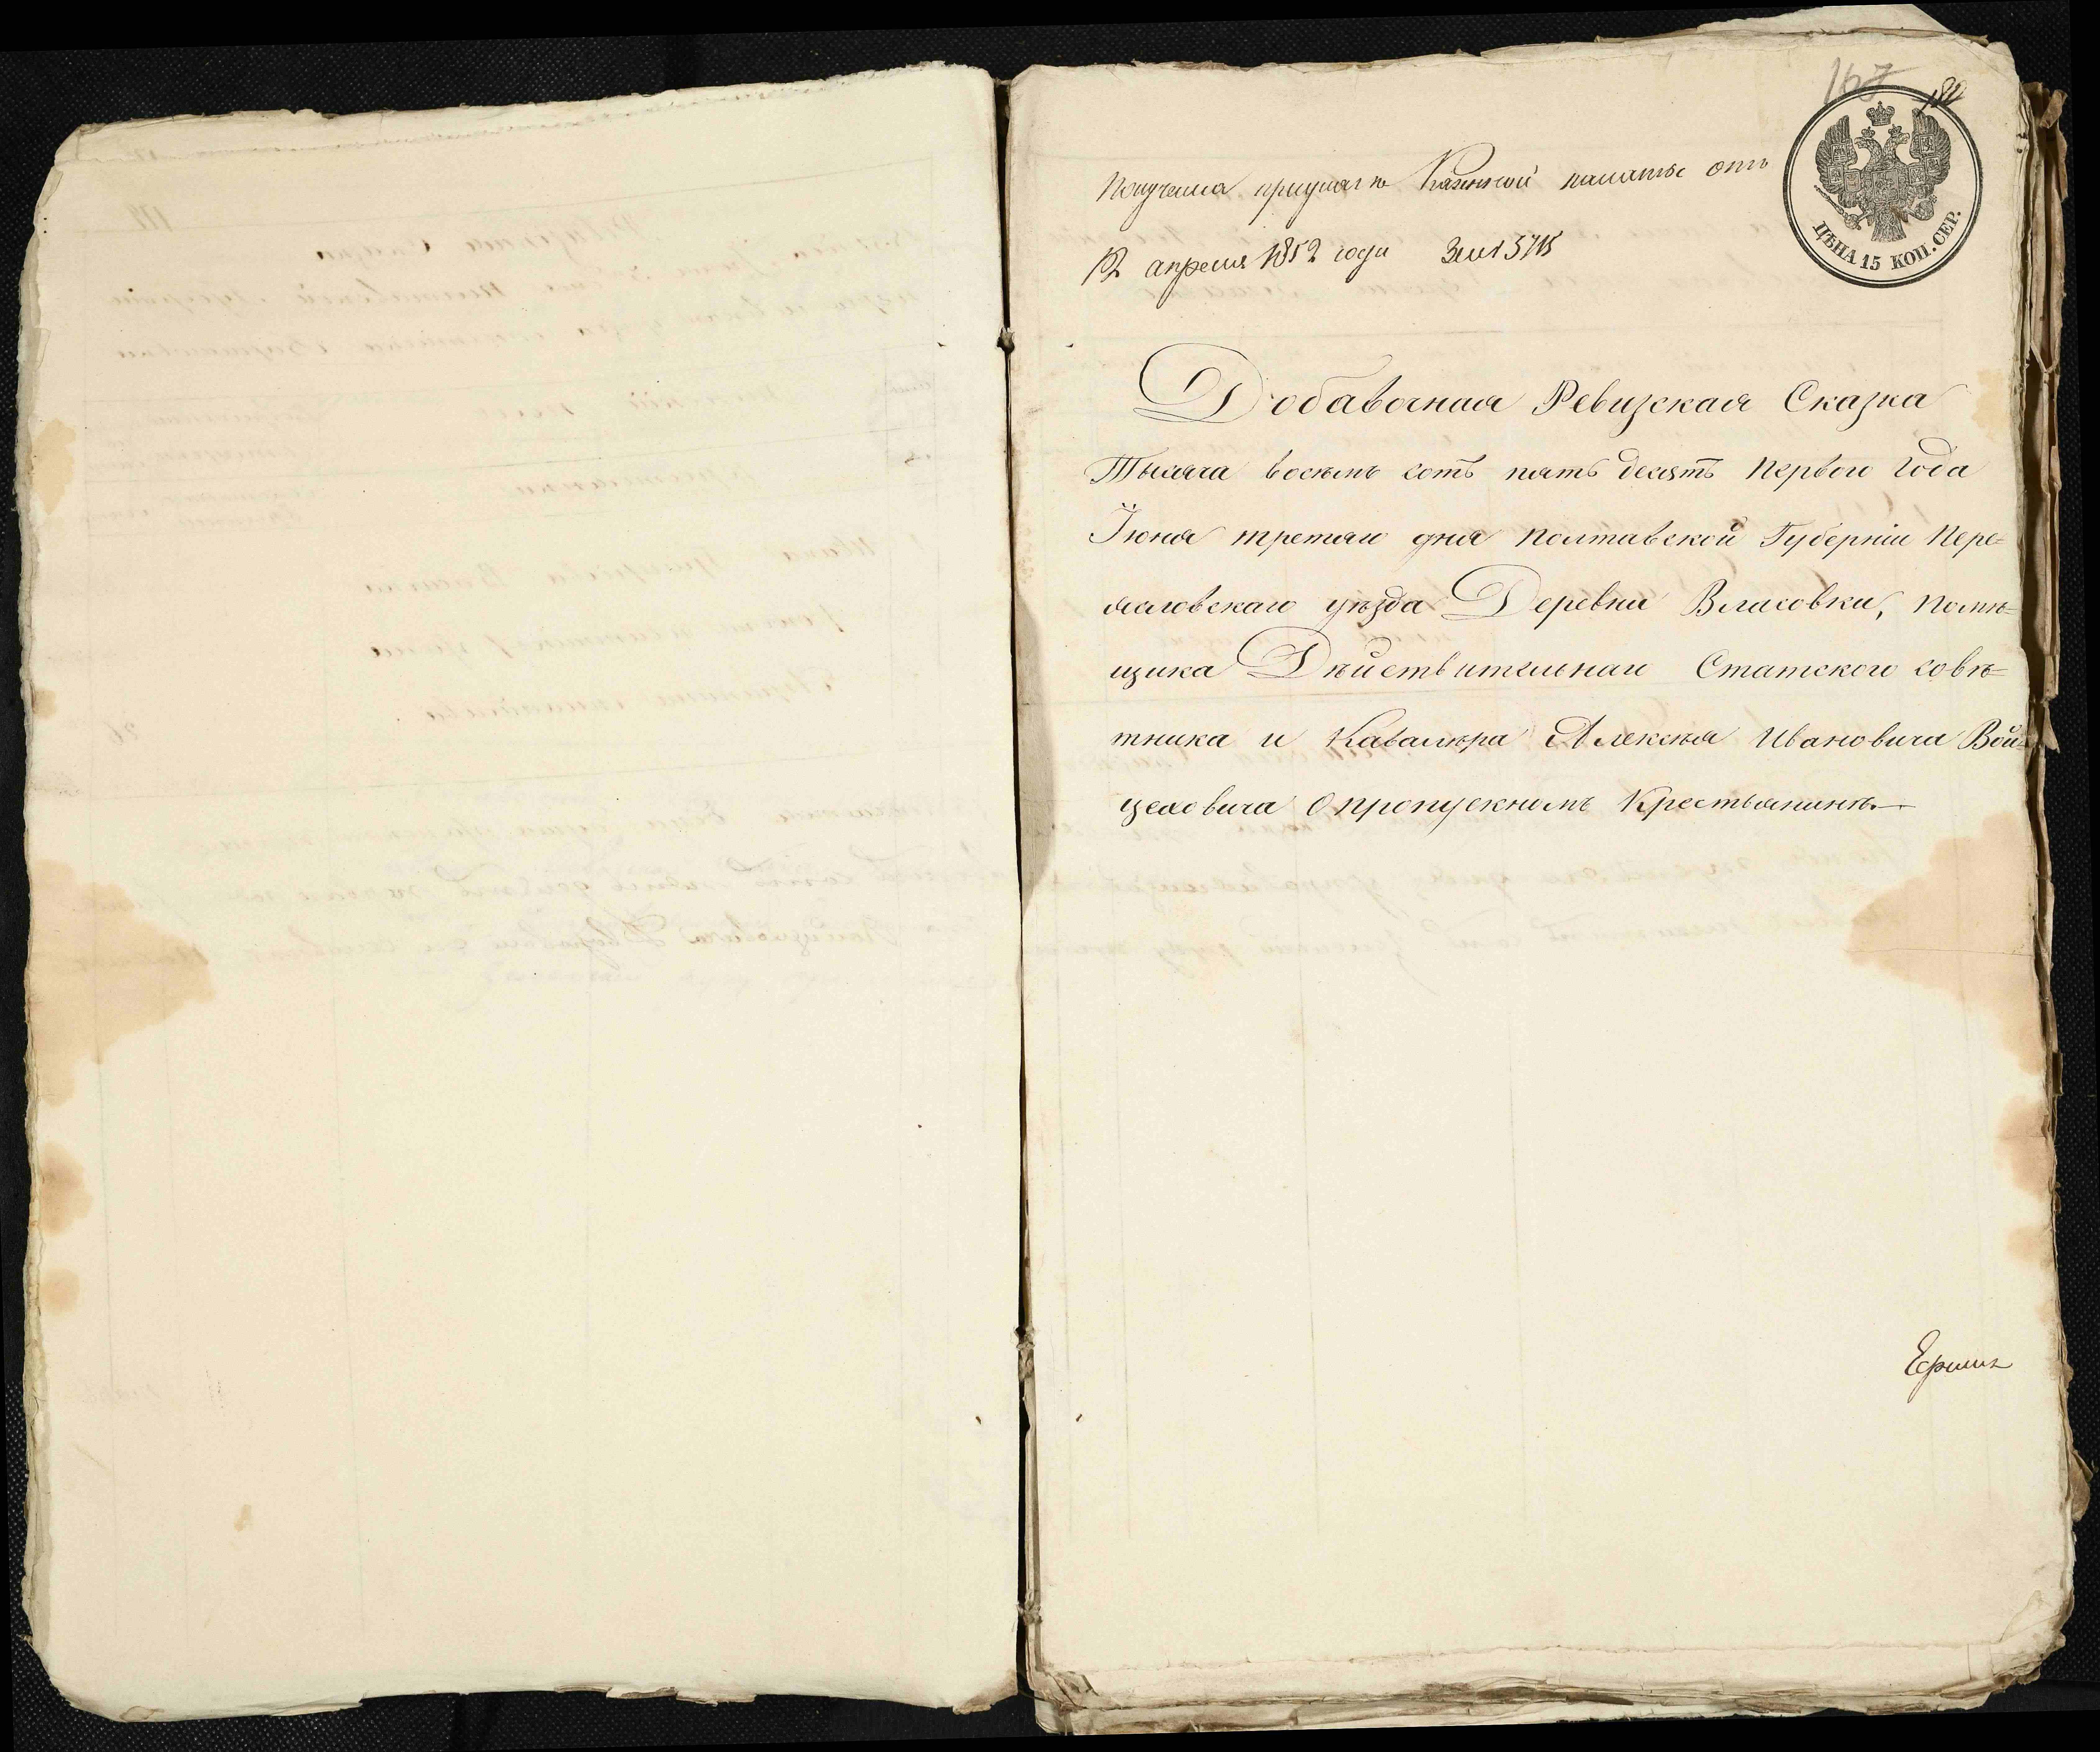 167 180
Получена при указѣ Казенной палаты отъ
12 апреля 1852 года За № 5715
ЦѢНА 15 КОП. СЕР.
Добавочная Ревизская Сказка
Тысяча восемь сотъ пять десятъ первого года
Іюня третяго дня Полтавской Губерніи Пере=
ясловскаго уѣзда Деревни Власовки, помѣ=
щика Дѣйствительнаго Статского совѣ=
тника и Кавалѣра Алексѣя Ивановича Вой=
цеховича О пропускномъ Крестьянинѣ.